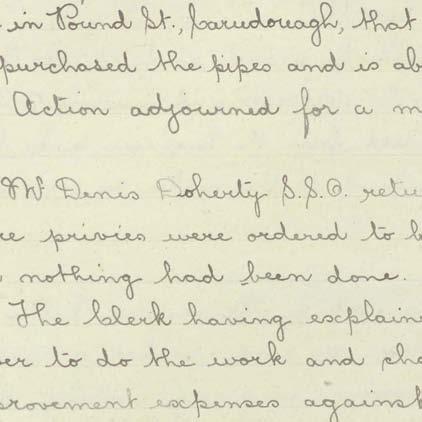 in Pound St., Carndonagh, that
purchased the pipes and is ab
Action adjourned for a m
Mr Denis Doherty S.S.O. retu
re privies were ordered to b
nothing had been done.
The Clerk having explaine
er to do the work and cha
provement expenses against